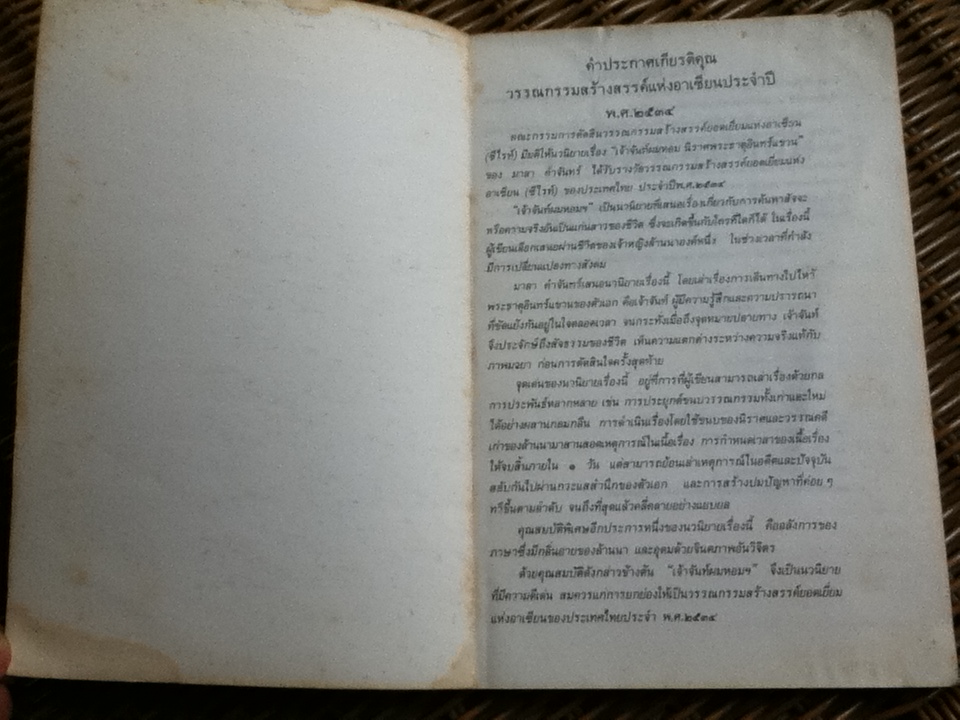 คำประกาศเกียรติคุณ
วรรณกรรมสร้างสรรค์แห่งอาเซียนประจำปี
พ.ศ.๒๕๓๔
คณะกรรมการตัดสินวรรณกรรมสร้างสรรค์ยอดเยี่ยมแห่งอาเซียน
(ซีไรท์) มีมติให้นวนิยายเรื่อง "เจ้าจันท์ผมหอม นิราศพระธาตุอินทร์แขวน"
ของ มาลา คำจันทร์ ได้รับรางวัลวรรณกรรมสร้างสรรค์ยอดเยี่ยมแห่ง
อาเซียน (ซีไรท์) ของประเทศไทย ประจำปีพ.ศ.๒๕๓๔
"เจ้าจันท์ผมหอมฯ" เป็นนวนิยายที่เสนอเรื่องเกี่ยวกับการค้นหาสัจจะ
หรือความจริงอันเป็นแก่นสารของชีวิต ซึ่งจะเกิดขึ้นกับใครที่ใดก็ได้ ในเรื่องนี้
ผู้เขียนเลือกเสนอผ่านชีวิตของเจ้าหญิงล้านนาองค์หนึ่ง ในช่วงเวลาที่กำลัง
มีการเปลี่ยนแปลงทางสังคม
มาลา คำจันทร์เสนอนวนิยายเรื่องนี้ โดยเล่าเรื่องการเดินทางไปไหว้
พระธาตุอินทร์แขวนของตัวเอก คือเจ้าจันท์ ผู้มีความรู้สึกและความปรารถนา
ที่ขัดแย้งกันอยู่ในใจตลอดเวลา จนกระทั่งเมื่อถึงจุดหมายปลายทาง เจ้าจันท์
จึงประจักษ์ถึงสัจธรรมของชีวิต เห็นความแตกต่างระหว่างความจริงแท้กับ
ภาพมายา ก่อนการตัดสินใจครั้งสุดท้าย
จุดเด่นของนวนิยายเรื่องนี้ อยู่ที่การที่ผู้เขียนสามารถเล่าเรื่องด้วยกล
การประพันธ์หลากหลาย เช่น การประยุกต์ขนบวรรณกรรมทั้งเก่าและใหม่
ได้อย่างผสานกลมกลืน การดำเนินเรื่องโดยใช้ขนบของนิราศและวรรณคดี
เก่าของล้านนามาสานสอดเหตุการณ์ในเนื้อเรื่อง การกำหนดเวลาของเนื้อเรื่อง
ให้จบสิ้นภายใน ๑ วัน แต่สามารถย้อนเล่าเหตุการณ์ในอดีตและปัจจุบัน
สลับกันไปผ่านกระแสสำนึกของตัวเอก และการสร้างปมปัญหาที่ค่อย ๆ
ทวีขึ้นตามลำดับ จนถึงที่สุดแล้วคลี่คลายอย่างแยบยล
คุณสมบัติพิเศษอีกประการหนึ่งของนวนิยายเรื่องนี้ คืออลังการของ
ภาษาซึ่งมีกลิ่นอายของล้านนา และอุดมด้วยจินตภาพอันวิจิตร
ด้วยคุณสมบัติดังกล่าวข้างต้น "เจ้าจันท์ผมหอมฯ" จึงเป็นนวนิยาย
ที่มีความดีเด่น สมควรแก่การยกย่องให้เป็นวรรณกรรมสร้างสรรค์ยอดเยี่ยม
แห่งอาเซียนของประเทศไทยประจำ พ.ศ.๒๕๓๔